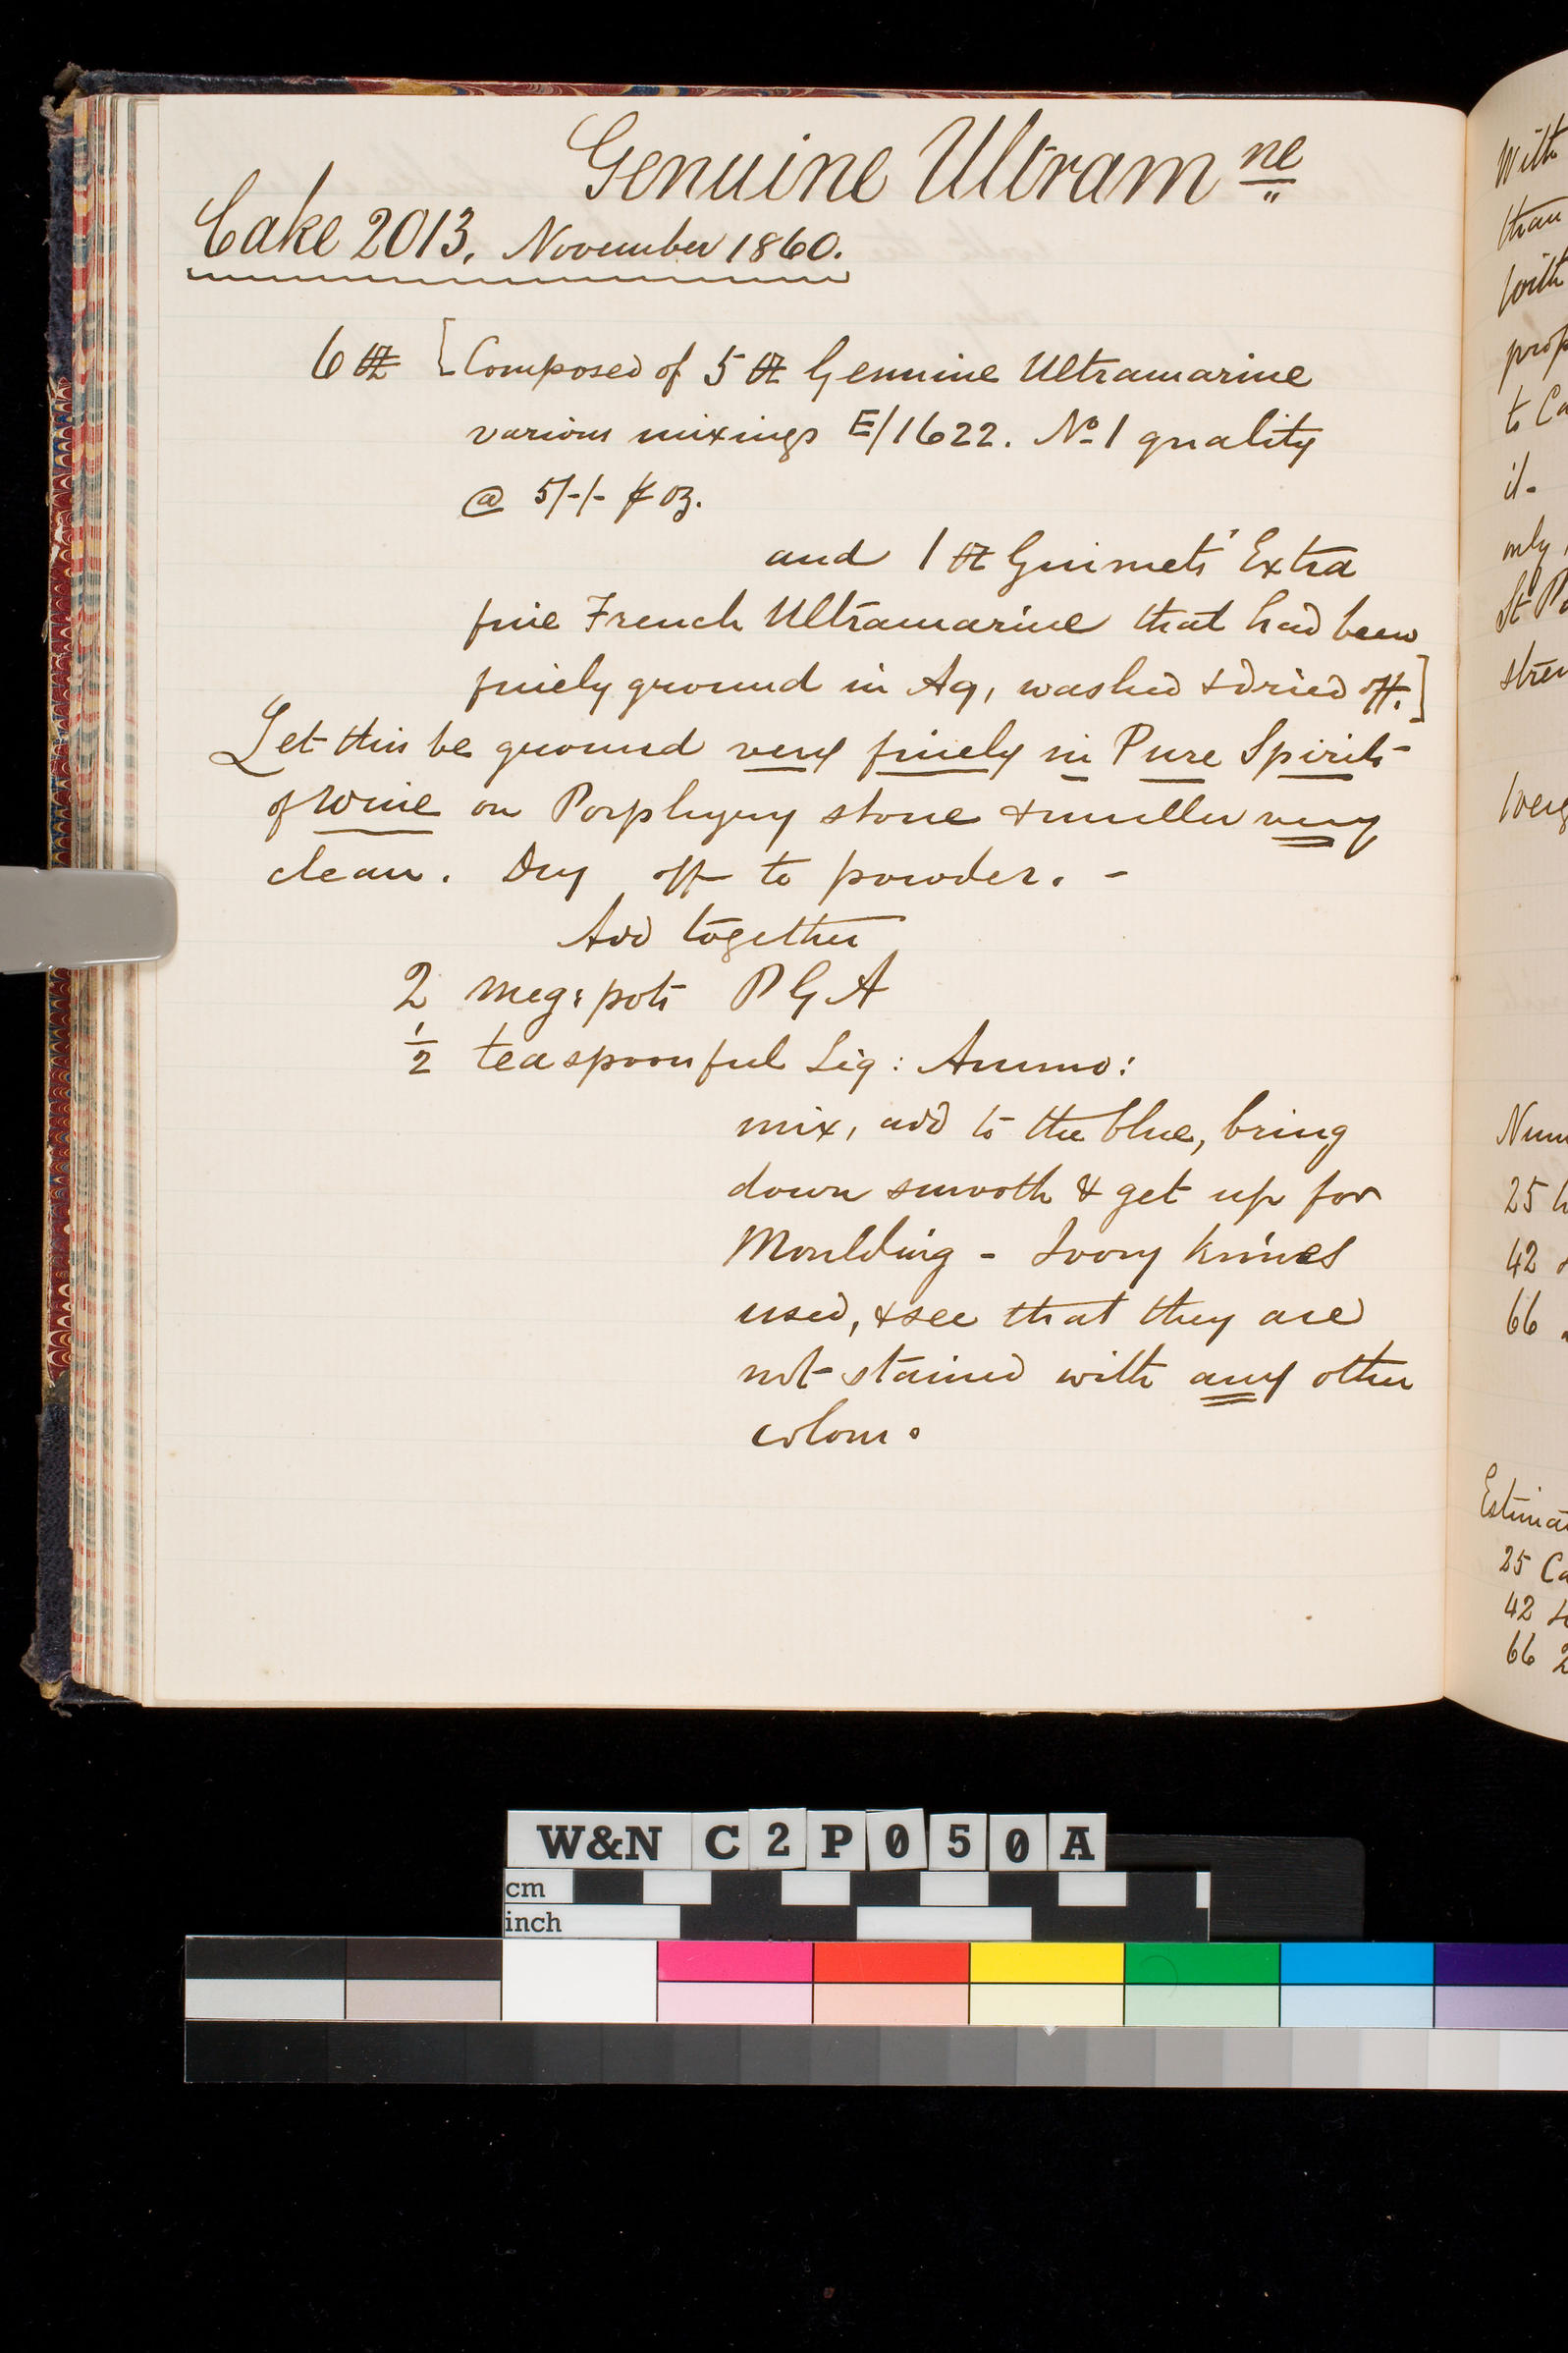 Genuine Ultram ne
Cake 2013. November 1860.
6 ℔ [Composed of 5 ℔ Genuine Ultramarine
various mixings E/1622. No 1 quality
@ 5/-/- ⅌ oz.
and 1 ℔ Guimets' Extra
fine French Ultramarine that had been
finely ground in Aq, washed & dried off.]
Let this be ground very finely in Pure Spirits
of Wine on Porphyry stone & muller very
clean. Dry off to powder. -
Add together
2 meg: pots P G A
1/2 teaspoonful Liq: Ammo:
mix, add to the blue, bring
down smooth & get up for
Moulding - Ivory knives
used, & see that they are
not stained with any other
colour.
With
than
with
prop
to Ca
it-
only
St P
stren
Weig
Num
25
42
66
Estima
25 Ca
42
66 2
W&N C2P050A
cm
inch